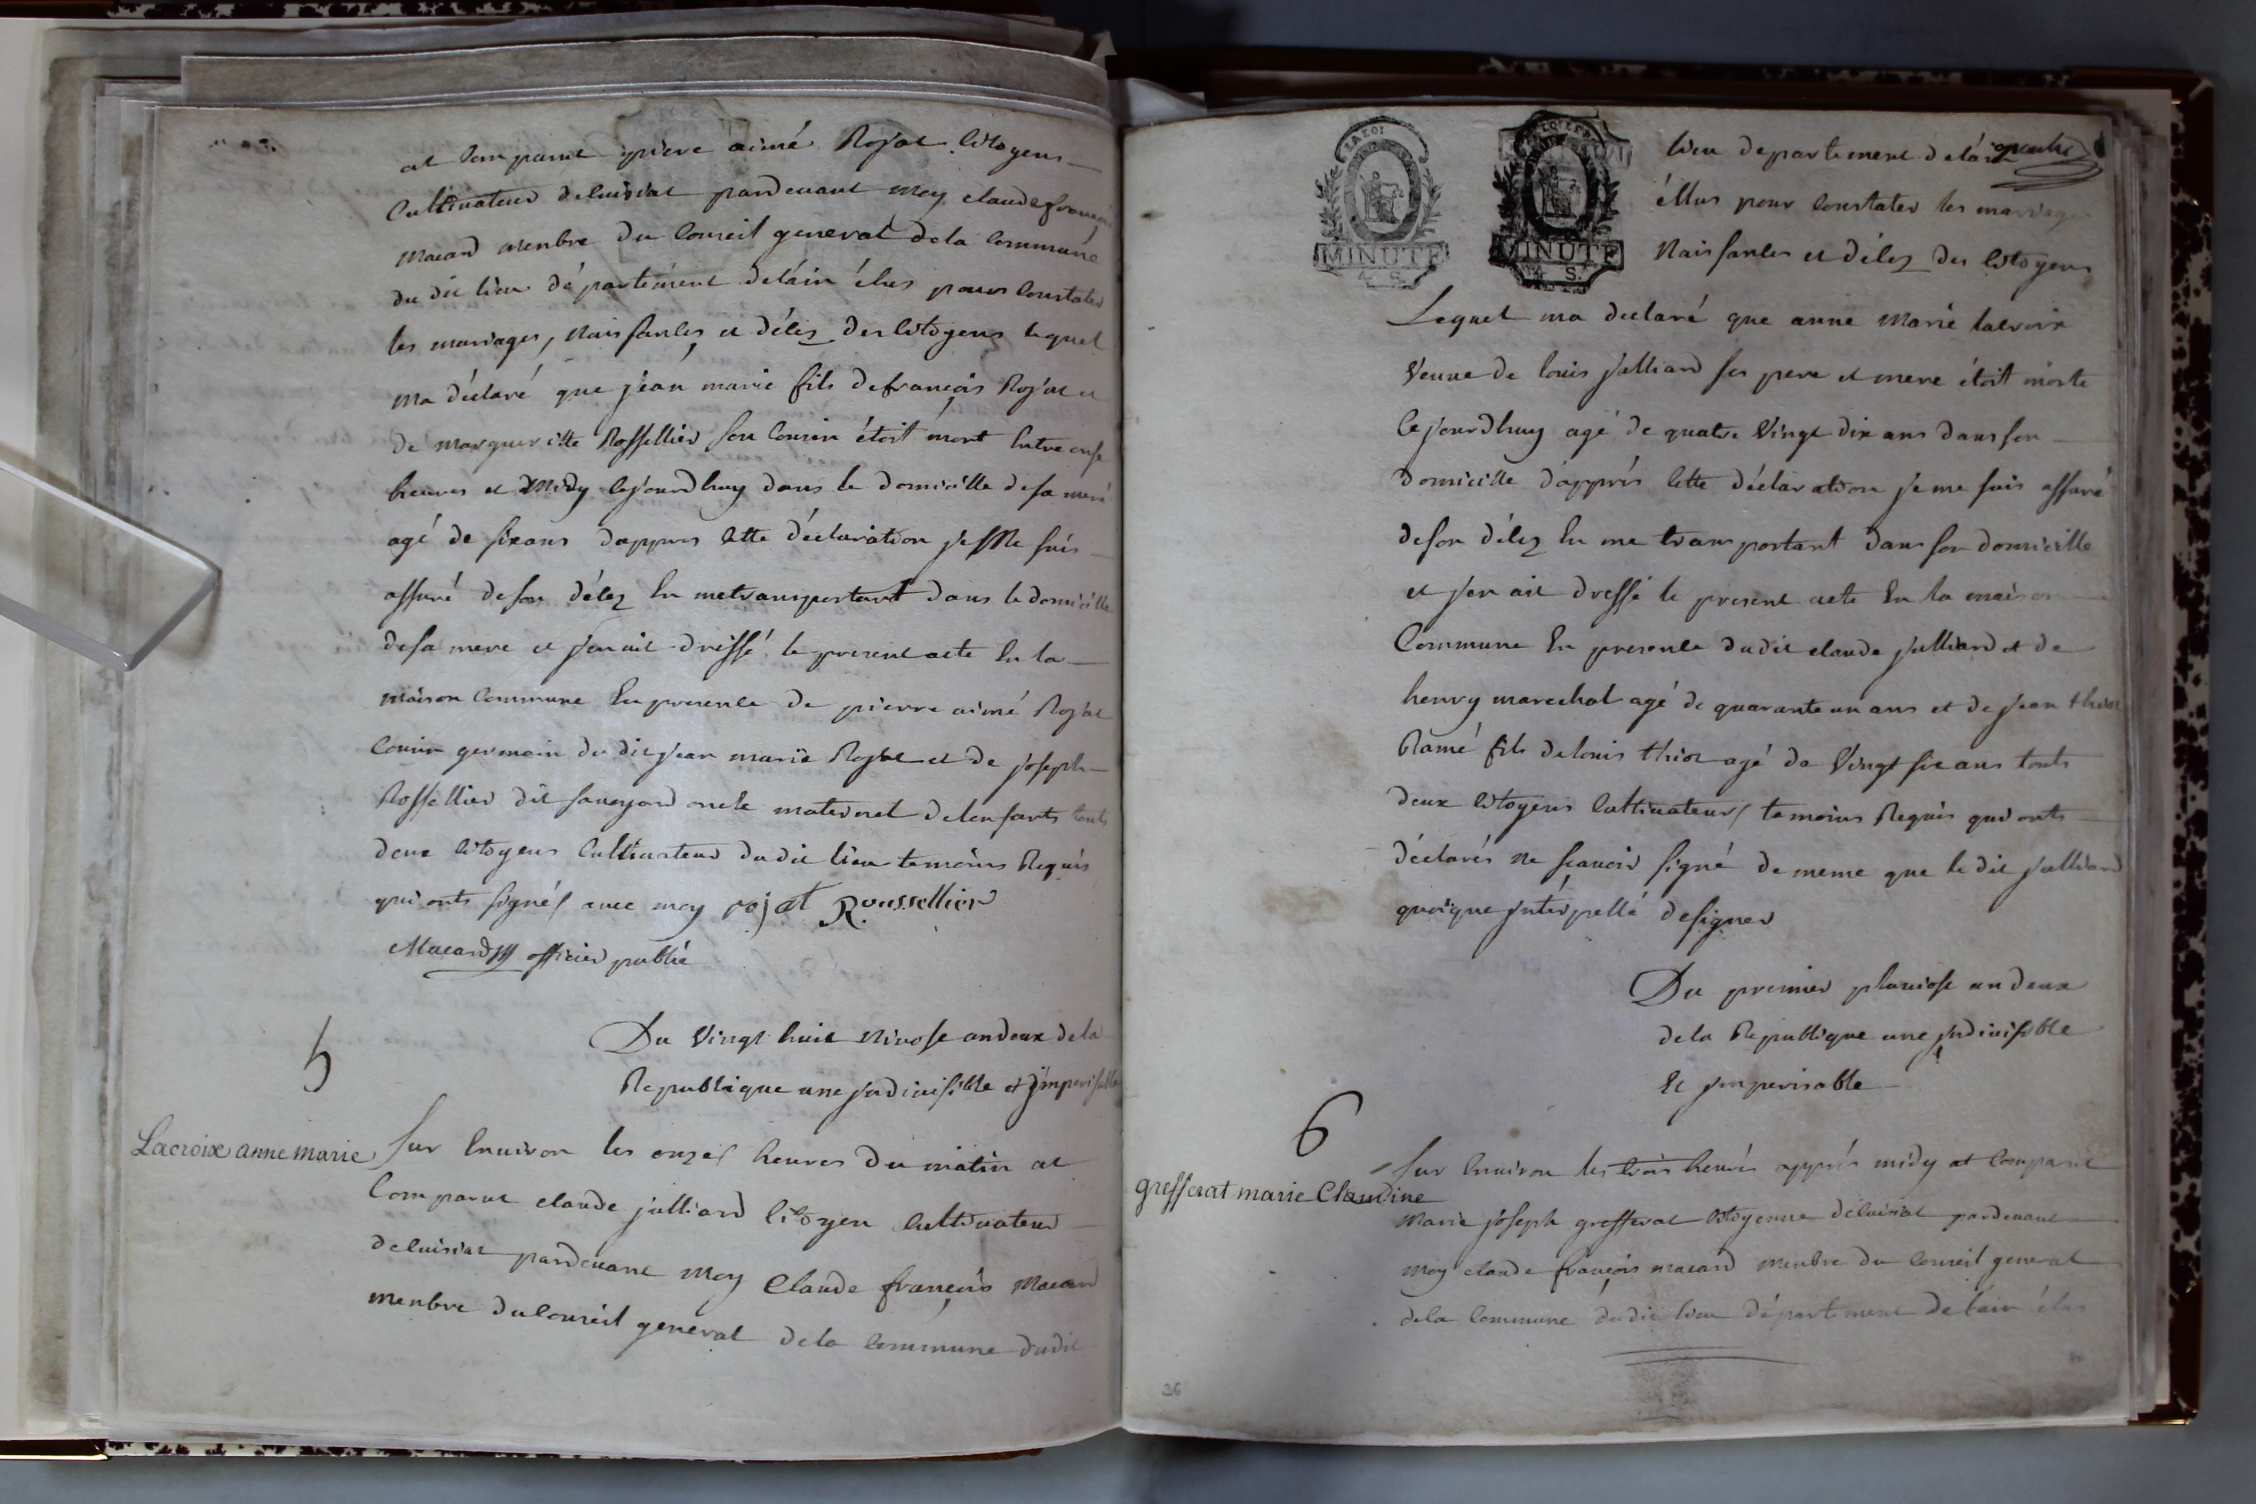 at Comparut pierre aimé Rojat Citoyens
Cultivateur deluisiat pardevant moy claude françois
macard menbre du Conseil general dela Commune
du dit lieu département deláin élus pour Constater
les mariages, Naissances et décez des Citoyens lequel
ma déclaré que jean marie fils defrançois Rojat et
de margueritte Rossellier son Cousin étoit mort Entre onse
heures et Midy cejourdhuy dans le domicille desa mere
agé de sixans dappres Cette déclaration je Me suis
assuré deson décez En metransportant dans le domicille
desa mere et jenait dressé le present acte En la
maison Commune En presence de pierre aimé Rojat
Cousin germain du dit jean marie Rojat et de joseph
Rossellier dit savoyard oncle maternel delenfants touts
deux Citoyens Cultivateur dudit lieu temoins Requis
qui onts signés avec moy rojat Roussellier
Macard officier public
5
Du Vingt huit Nivose andeux dela
Republique une jndivisible et jmperisable
Lacroix anne marie
Sur Environ les onzes heures du matin at
Comparut claude julliard Citoyen Cultivateur
deluisiat pardevant Moy Claude françois Macard
menbre duConseil general dela Commune dudit
LA LOI
MINUTE
4 S.
MINUTE
4 S.
lieu departement deláin
éllus pour Constater les mariages
Naissances et décez des Citoyens
Lequel ma declaré que anne Marie lacroix
Veuve de louis julliard ses pere et mere étoit morte
Cejourdhuy agé de quatre Vingt dix ans dans son
domicille dápprés Cette déclaration je me suis assuré
deson décez En me transportant dans son domicille
et jen ait dressé le present acte En la maison
Commune En presence dudit claude julliard et de
henry marechal agé de quarante un ans et de jean thiot
Ramé fils delouis thiot agé de Vingt six ans touts
deux Citoyens Cultivateurs temoins Requis qui onts
déclarés ne sçavoir signé de meme que le dit julliard
quoique jnterpellé designer
Du premier pluviose an deux
dela Republique une jndivisible
Et jmperisable
6
gresserat marie Claudine
Sur Environ les trois heures apprés midy at Comparut
Marie joseph gresserat Citoyenne deluisiat pardevant
Moy claude françois macard menbre du Conseil general
dela Commune dudit lieu département deláin élus
36